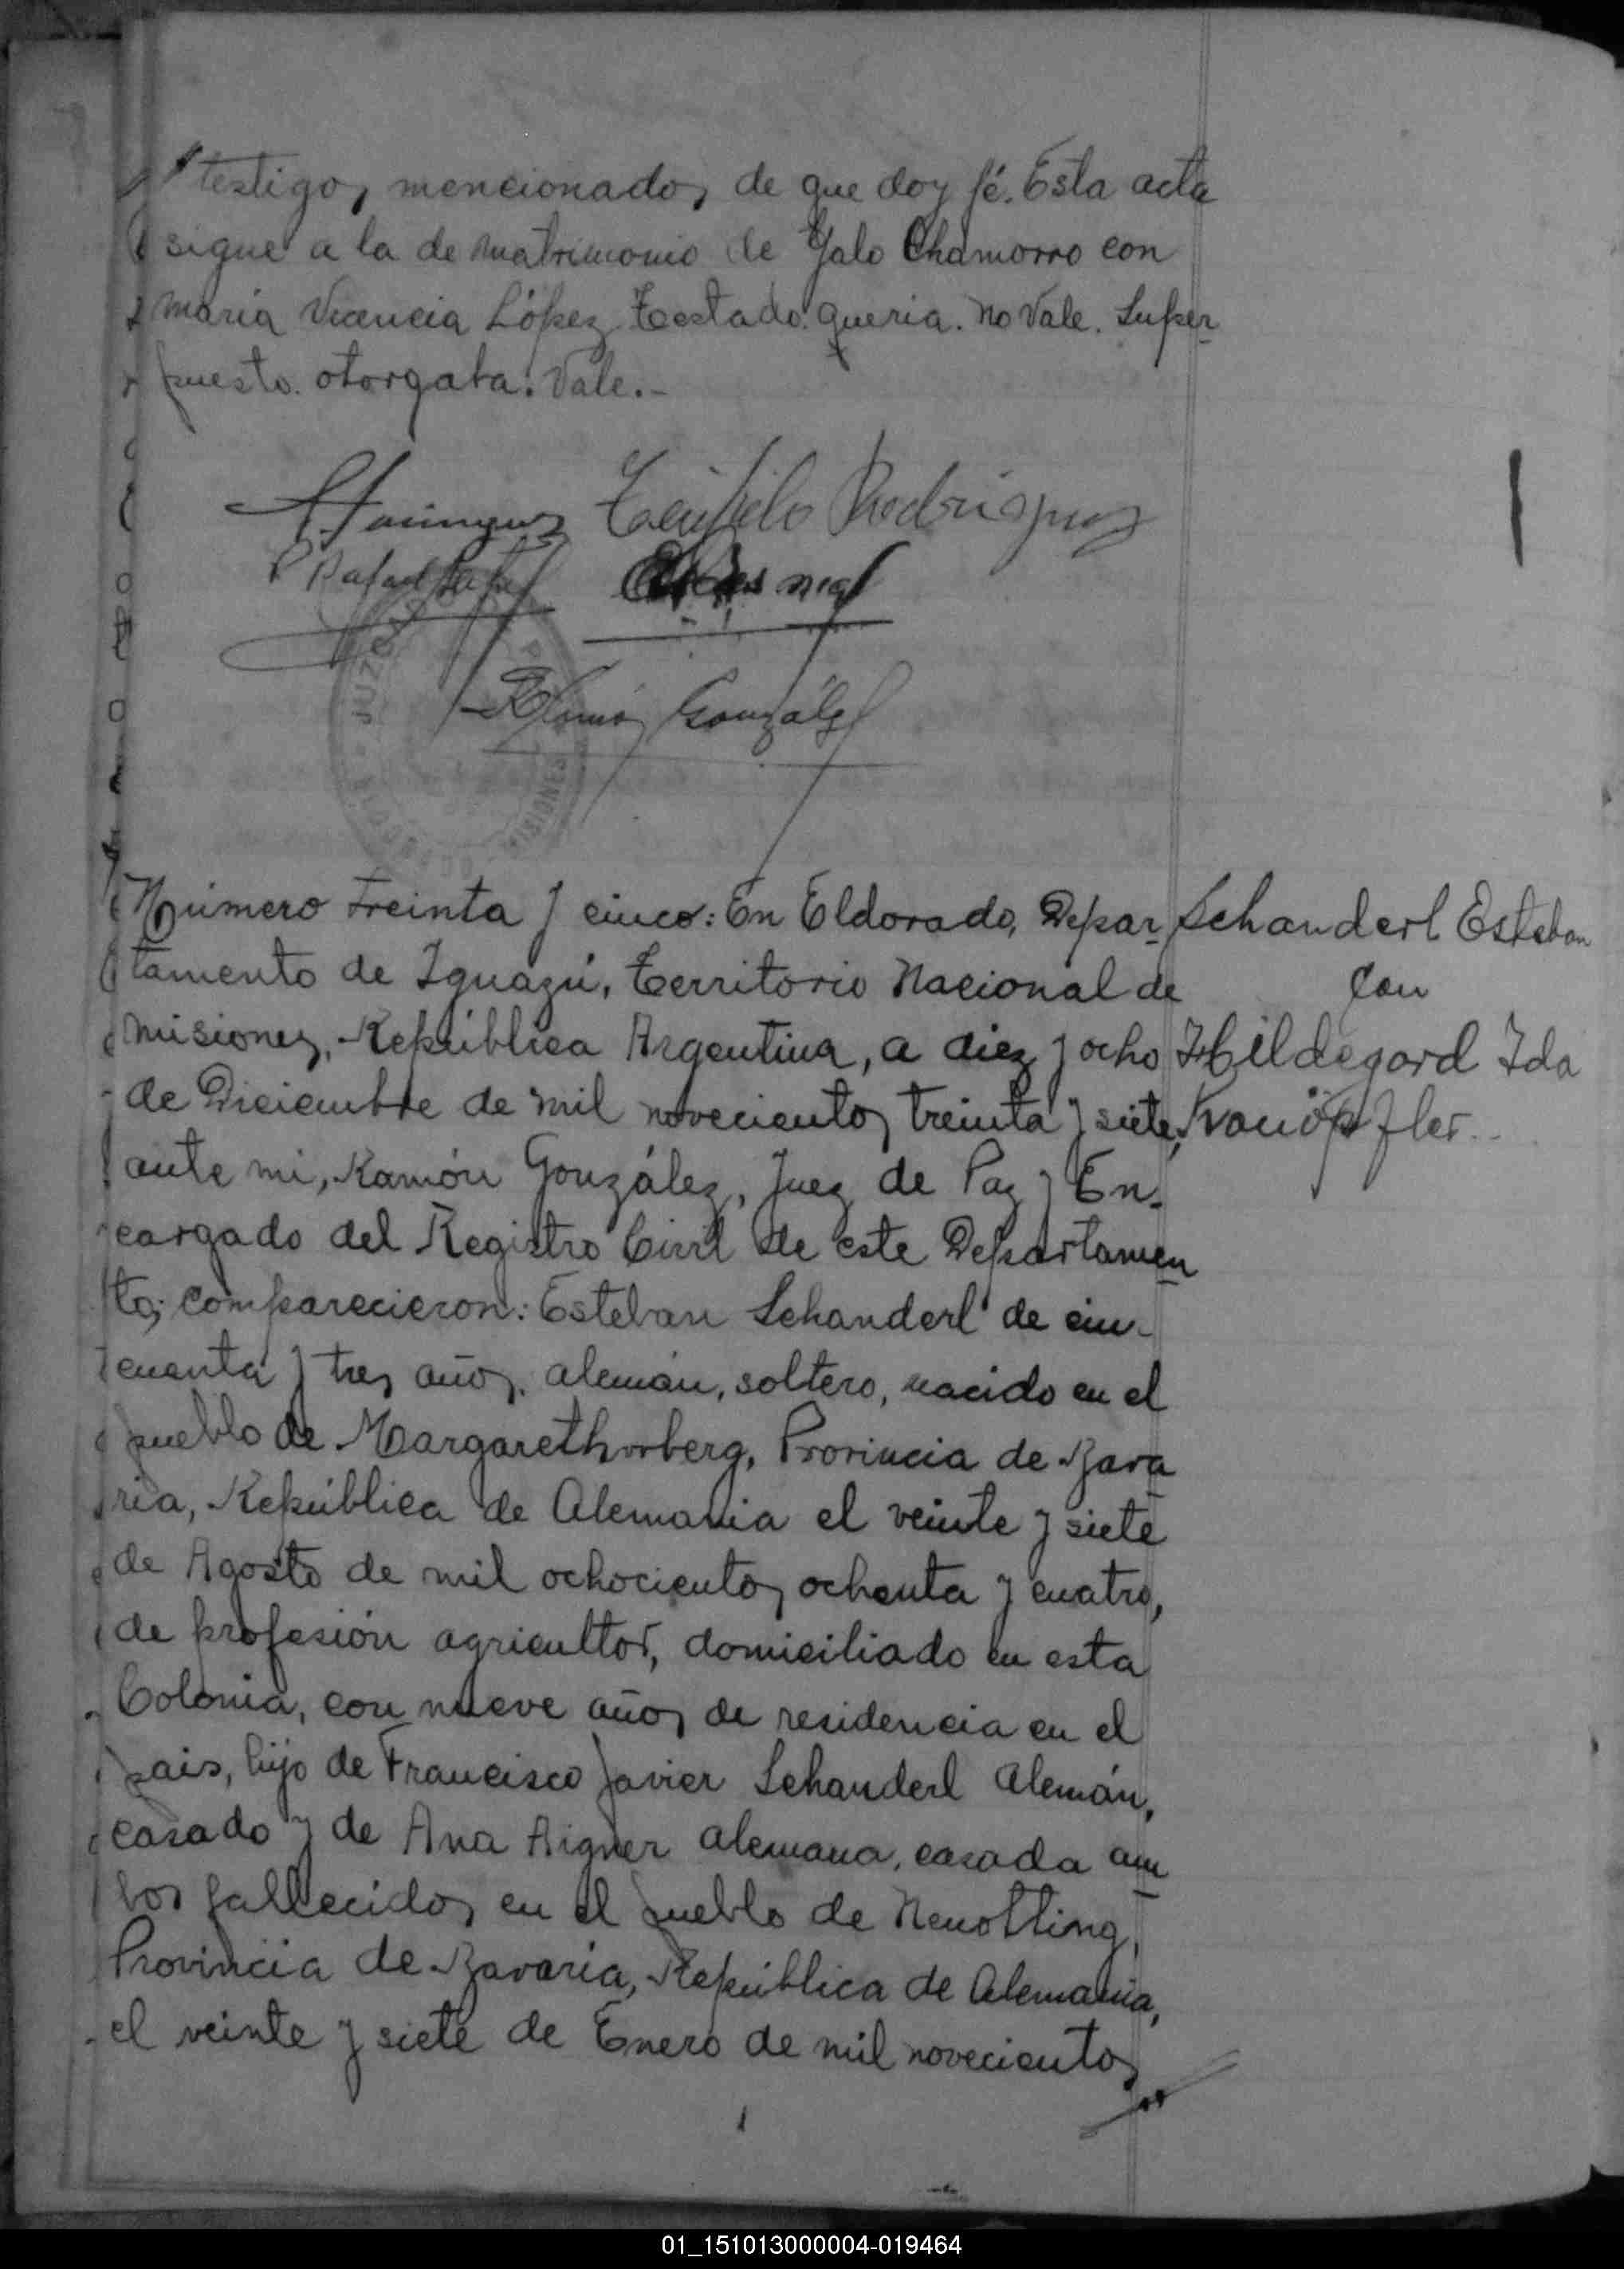 testigos mencionados de que doy fé. Esta acta
sigue a la de matrimonio de Galo Chamorro con
María Vicencia López Testado. queria. no Vale. Super-
puesto. otorgaba. Vale.-
Teófilo Rodriguez
Rafael
Ramón González
JUZGADO
MISIONES
Número Treinta y cinco: En Eldorado, Depar-
tamento de Iguazú, Territorio Nacional de
Misiones, República Argentina, a diez y ocho
de Diciembre de mil novecientos treinta y siete,
ante mi, Ramón González, Juez de Paz y En-
cargado del Registro Civil de este Departamen-
to; comparecieron: Esteban Schanderl de cin-
cuenta y tres años, alemán, soltero, nacido en el
pueblo de Margarethorberg, Provincia de Bava-
ria, República de Alemania el veinte y siete
de Agosto de mil ochocientos ochenta y cuatro,
de profesión agricultor, domiciliado en esta
Colonia, con nueve años de residencia en el
pais, hijo de Francisco Javier Schanderl Alemán,
casado y de Ana Aigner alemana, casada am-
bos fallecidos en el pueblo de Neuotting,
Provincia de Bavaria, República de Alemania,
el veinte y siete de Enero de mil novecientos
Schanderl Esteban
con
Hildegard Ida
01_151013000004-019464